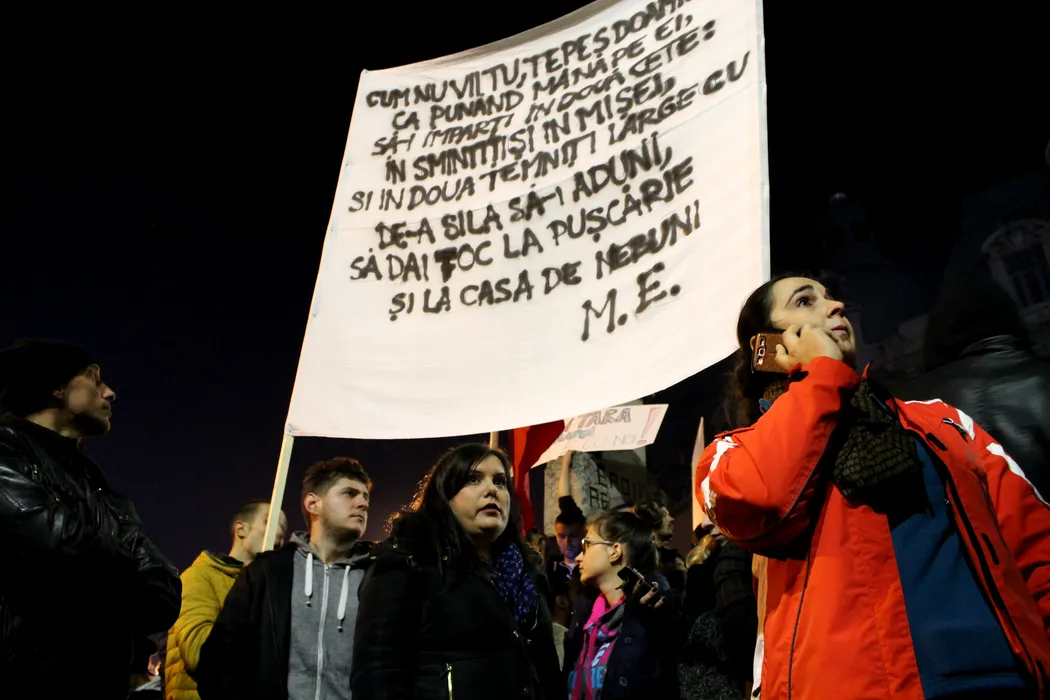 CUM NU VII TU, ȚEPEȘ DOAMNE
CA PUNÂND MÂNA PE EI,
SĂ-I IMPARȚI ÎN DOUĂ CETE:
ÎN SMINTIȚI ȘI IN MIȘEI,
SI IN DOUA TEMNIȚI LARGE CU
DE-A SILA SĂ-I ADUNI,
SĂ DAI FOC LA PUȘCĂRIE
ȘI LA CASA DE NEBUNI
M. E.
TARA